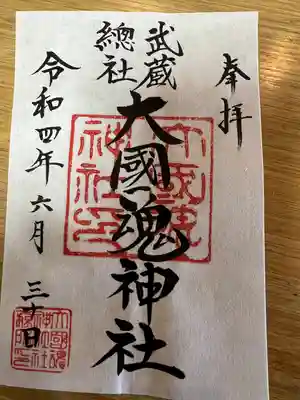 奉拝
武蔵
總社
大國魂神社
令和四年六月三十日
大國魂
神社印